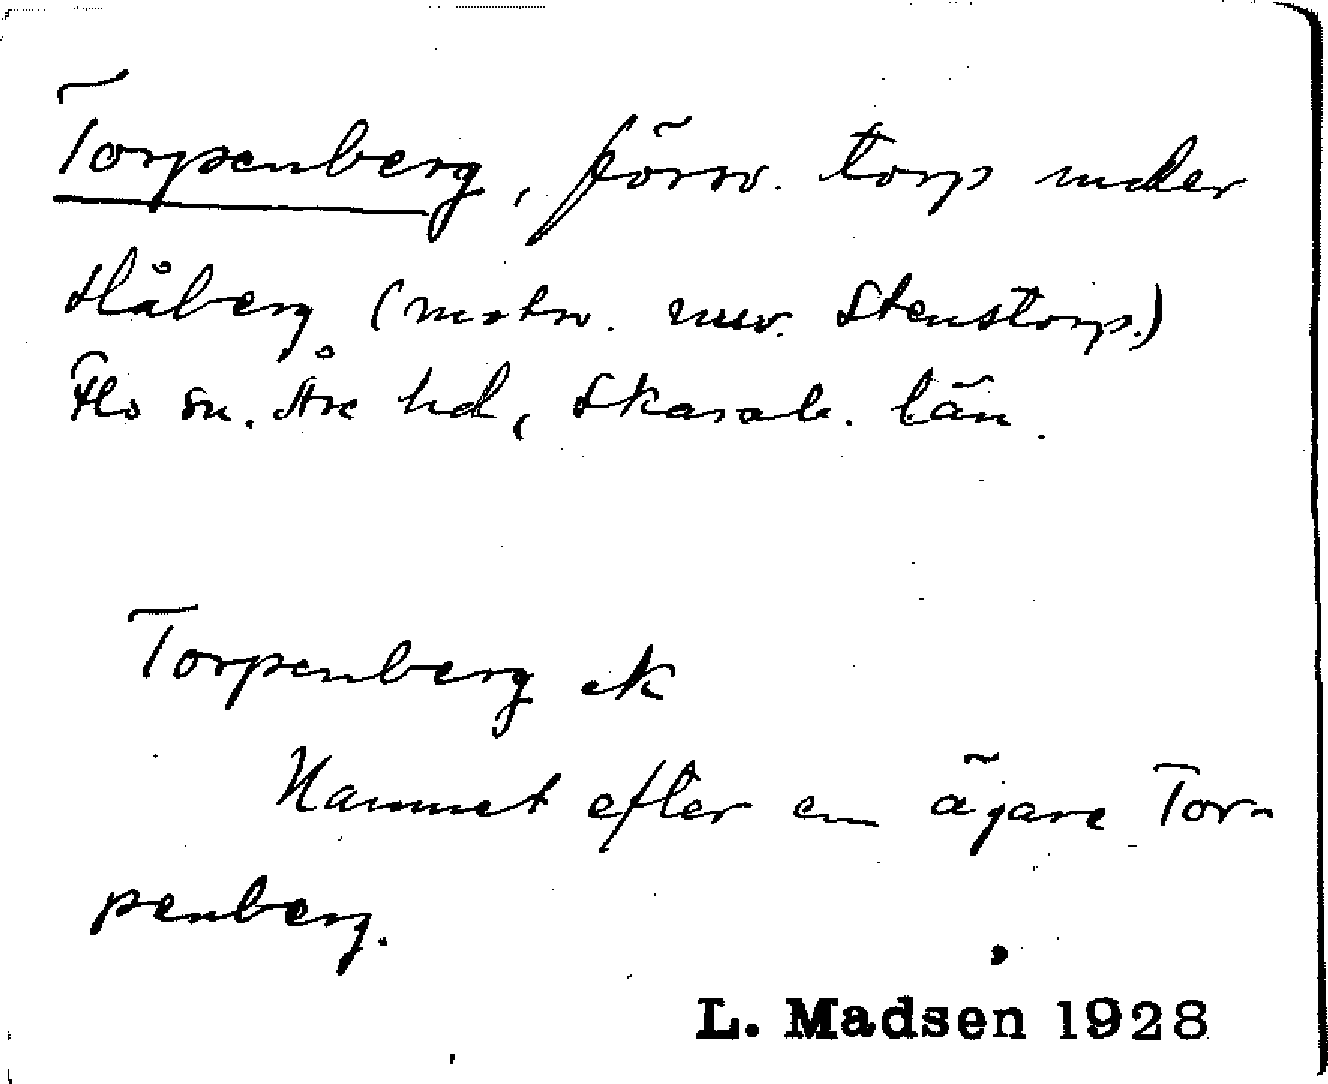 Torpenberg, försv. torp under
Håberg (motsv. nuv. Stenstorp.)
Flo sn. Åse hd, Skarab. län.
Torpenberg ek
Namnet efter en ägare Tor-
penberg.
L. Madsen 1928